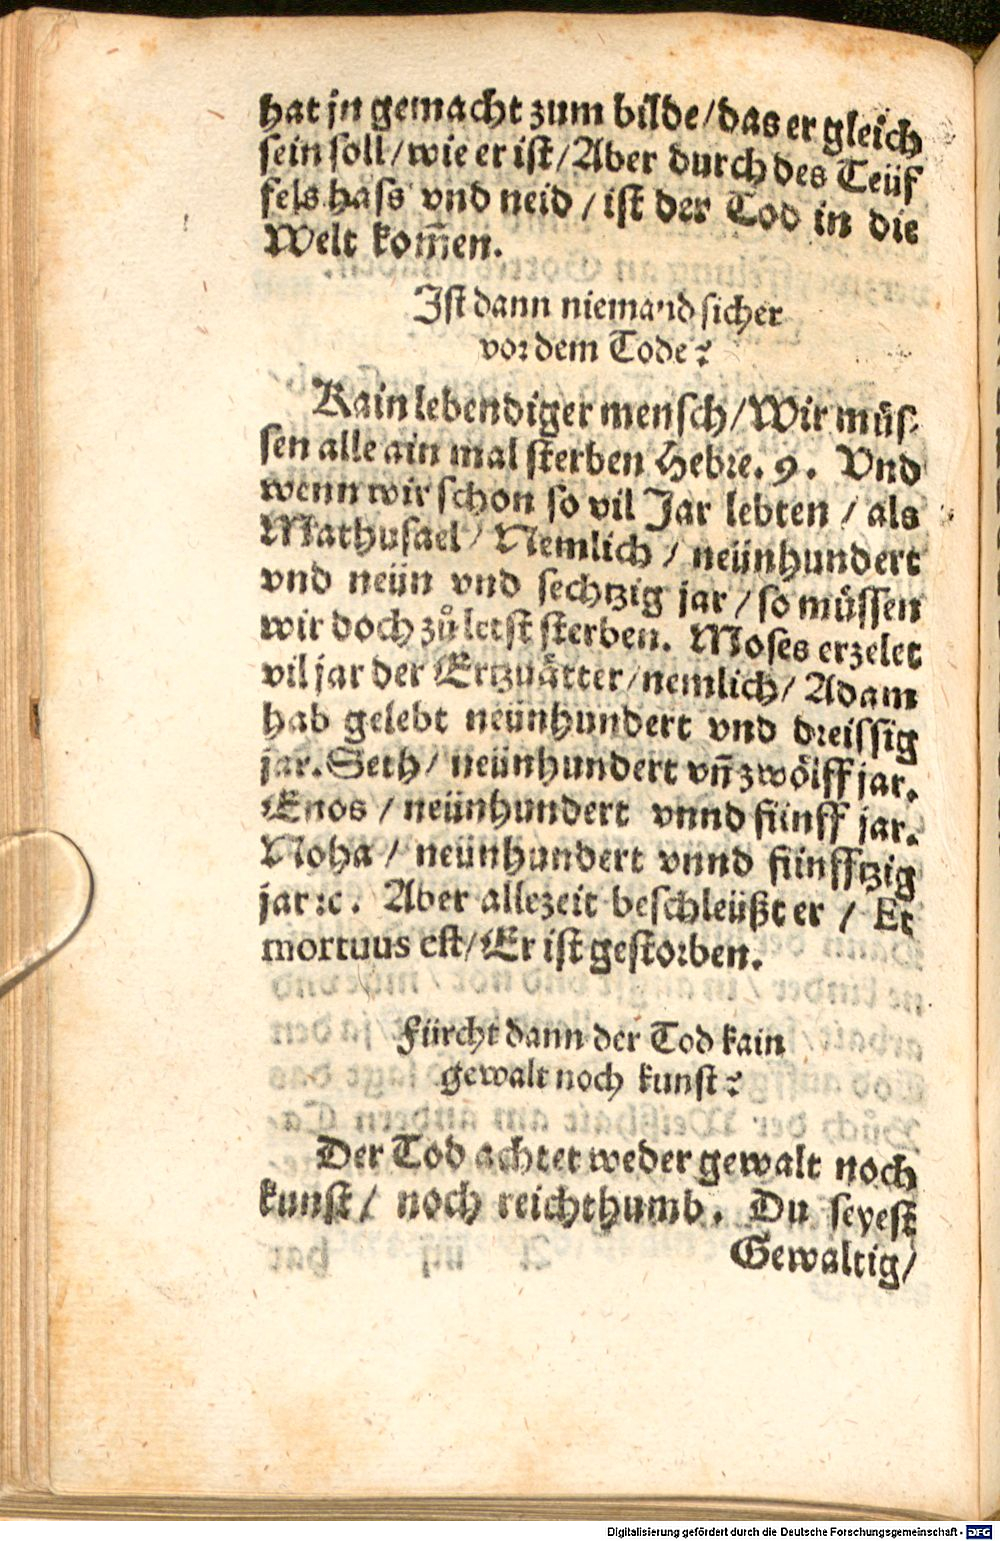 hat jn gemacht zum bilde/das er gleich
sein soll/wie er ist/Aber durch des Teüf
fels hass vnd neid / ist der Tod in die
Welt kom̄en.
Ist dann niemand sicher
vor dem Tode?
Kain lebendiger mensch/Wir müs-
sen alle ain mal sterben Hebre. 9. Vnd
wenn wir schon so vil Jar lebten / als
Mathusael/ Nemlich / neünhundert
vnd neün vnd sechtzig jar / so müssen
wir doch zů letst sterben. Moses erzelet
vil jar der Ertzuätter/nemlich/ Adam
hab gelebt neünhundert vnd dreissig
jar. Seth/ neünhundert vn̄ zwölff jar.
Enos / neünhundert vnnd fünff jar.
Noha / neünhundert vnnd fünfftzig
jar ꝛc. Aber allezeit beschleüßt er / Et
mortuus est/Er ist gestorben.
Fürcht dann der Tod kain
gewalt noch kunst?
Der Tod achtet weder gewalt noch
kunst/ noch reichthumb. Du seyest
Gewaltig/
Digitalisierung gefördert durch die Deutsche Forschungsgemeinschaft - DFG